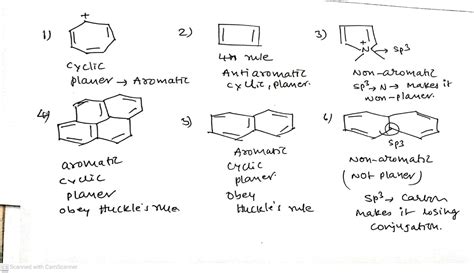 1)
+
cyclic
planer → Aromatic
2)
4n rule
Antiaromatic
cyclic, planer.
3)
N → sp3
+
Non-aromatic
sp3 → N → makes it
non-planer.
4)
aromatic
cyclic
planer
obey Huckle's rule
5)
Aromatic
cyclic
planer
obey
Huckle's rule
6)
sp3
Non-aromatic
(not planer)
sp3 → Carbon
makes it losing
conjugation.
CS Scanned with CamScanner